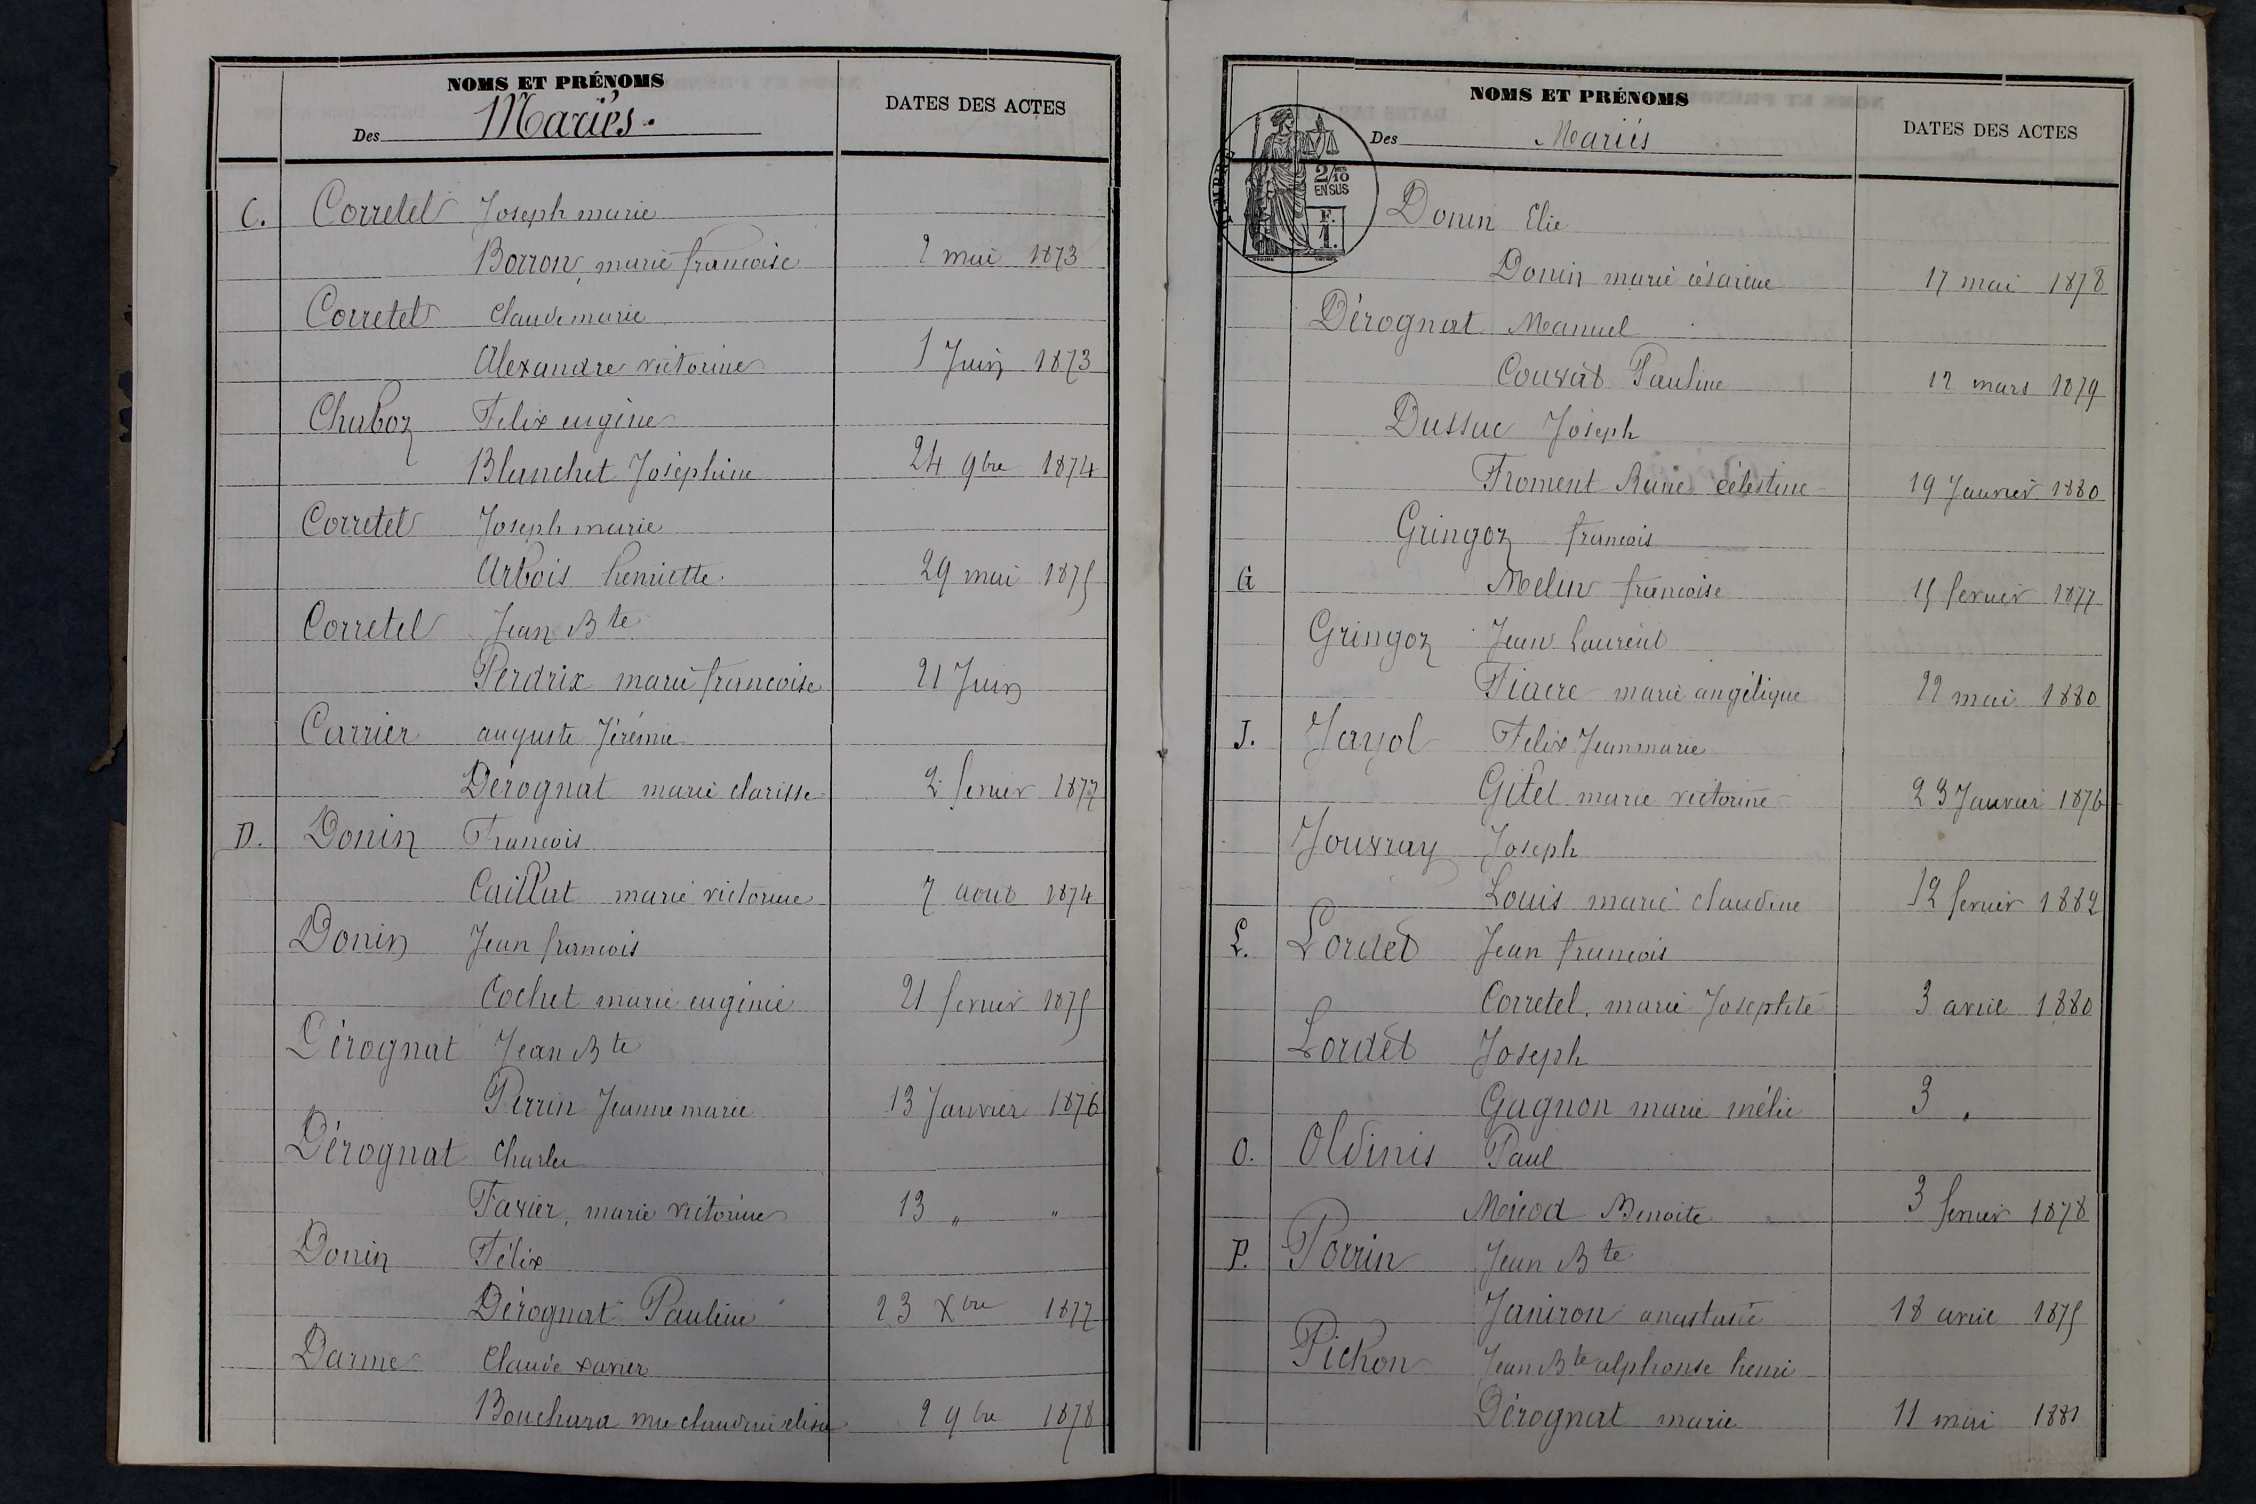 NOMS ET PRÉNOMS
Des Mariés.
DATES DES ACTES
C. Corretel Joseph marie
Borron marie francoise 2 mai 1873
Corretel Claude marie
Alexandre victorine 1 Juin 1873
Chaboz Felix eugène
Blanchet Joséphine 24 9bre 1874
Corretel Joseph marie
Arbois henriette. 29 mai 1875
Corretel Jean Bte
Perdrix marie francoise 21 Juin
Carrier auguste Jérémie
Dérognat marie clarisse 2 fevrier 1877
D. Donin Francois
Caillat marie victorine 7 aout 1874
Donin Jean francois
Cochet marie eugénie 21 fevrier 1875
Dérognat Jean Bte
Perrin Jeanne marie 13 Janvier 1876
Dérognat Charles
Favier, marie victorine 13 " "
Donin Félix
Dérognat Pauline 23 Xbre 1877
Darme Claude xavier
Bouchard mie claudine elisa 2 9bre 1878
NOMS ET PRÉNOMS
Des Mariés
DATES DES ACTES
TIMBRE
2/10
EN SUS
F.
1.
Donin Elie
Donin marie césarine 17 mai 1878
Dérognat Manuel
Couvat Pauline 12 mars 1879
Dussuc Joseph
Froment célestine 19 Janvier 1880
Gringoz francois
G Melin francoise 15 fevrier 1877
Gringoz Jean Laurent
Fiacre marie angélique 22 mai 1880
J. Jayol Felix Jean marie
Gitel marie victorine 23 Janvier 1876
Jouvray Joseph
Louis marie claudine 12 fevrier 1882
L. Lordet Jean francois
Corretel. marie Josephte 3 avril 1880
Lordet Joseph
Gagnon marie mélie 3 "
O. Oldinis Paul
Benoite 3 fevrier 1878
P. Perrin Jean Bte
Janiron anastasie 18 avril 1875
Pichon Jean Bte alphonse henri
Dérognat marie 11 mai 1881